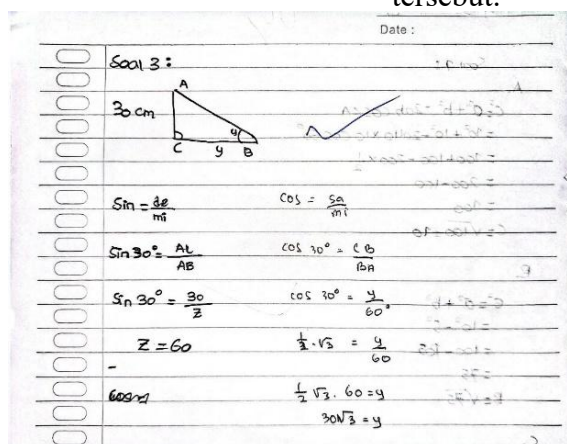 tersebut.
Date :
Soal 3 :
A
30 cm
C y B
Sin = de/mi
cos = sa/mi
Sin 30° = AC/AB
cos 30° = CB/BA
Sin 30° = 30/z
cos 30° = y/60
Z = 60
1/2 . √3 = y/60
1/2 √3 . 60 = y
30√3 = y